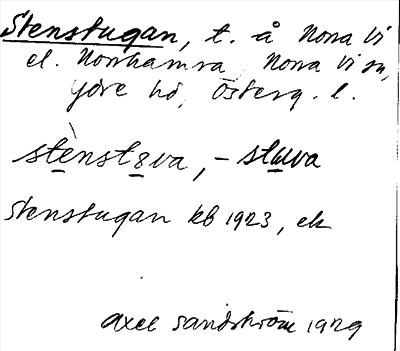 Stenstugan, t. å Norra Vi
el. Norrhamra Norra Vi sn,
Ydre hd, Österg. l.
stènstȣva, – stuva
Stenstugan kb 1923, ek
Axel Sandström 1929